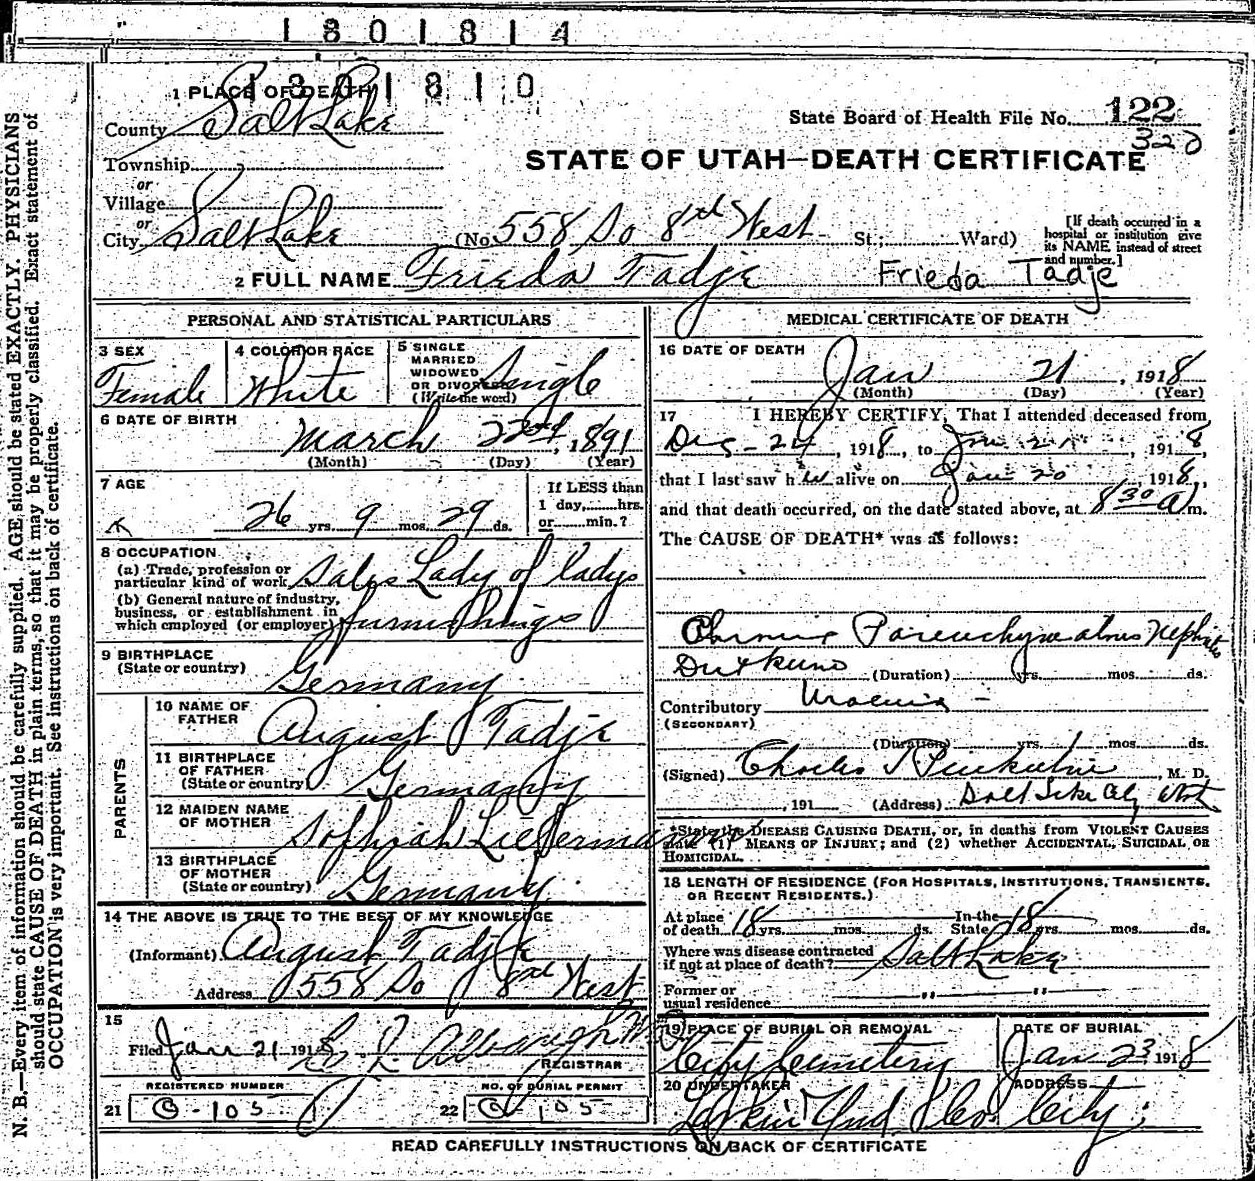 1801814
1801810
1 PLACE OF DEATH
County Salt Lake
State Board of Health File No. 122
Township
or
Village
or
City Salt Lake
STATE OF UTAH—DEATH CERTIFICATE
(No 558 So 8th West St; Ward)
[If death occurred in a
hospital or institution give
its NAME instead of street
and number.]
2 FULL NAME Frieda Tadje Frieda Tadje
PERSONAL AND STATISTICAL PARTICULARS
3 SEX
Female
4 COLOR OR RACE
White
5 SINGLE
MARRIED
WIDOWED
OR DIVORCED
(Write the word)
Single
6 DATE OF BIRTH
March 22nd, 1891
(Month) (Day) (Year)
7 AGE
26 yrs. 9 mos. 29 ds.
If LESS than
1 day, hrs.
or min.?
8 OCCUPATION
(a) Trade, profession or
particular kind of work Sales Lady of ladys
(b) General nature of industry,
business, or establishment in
which employed (or employer) furnishings
9 BIRTHPLACE
(State or country) Germany
PARENTS
10 NAME OF
FATHER August Tadje
11 BIRTHPLACE
OF FATHER
(State or country) Germany
12 MAIDEN NAME
OF MOTHER Sophiah
13 BIRTHPLACE
OF MOTHER
(State or country) Germany
14 THE ABOVE IS TRUE TO THE BEST OF MY KNOWLEDGE
(Informant) August Tadje
Address 558 So 8 West
15
Filed Jan 21 1918
REGISTRAR
REGISTERED NUMBER
21 105
NO. OF BURIAL PERMIT
22 105
MEDICAL CERTIFICATE OF DEATH
16 DATE OF DEATH
Jan 21, 1918
(Month) (Day) (Year)
17 I HEREBY CERTIFY, That I attended deceased from
Dec - 24, 1918, to Jan 21, 1918,
that I last saw h alive on Jan 20 1918,
and that death occurred, on the date stated above, at 8 30 A m.
The CAUSE OF DEATH* was as follows:
Chronic Parenchymatous Nephritis
(Duration) yrs. mos. ds.
Contributory
(SECONDARY)
(Duration) yrs. mos. ds.
(Signed) Charles, M. D.
, 191 (Address) Salt Lake City Utah
*State the DISEASE CAUSING DEATH, or, in deaths from VIOLENT CAUSES
state (1) MEANS OF INJURY; and (2) whether ACCIDENTAL, SUICIDAL OR
HOMICIDAL.
18 LENGTH OF RESIDENCE (FOR HOSPITALS, INSTITUTIONS, TRANSIENTS,
OR RECENT RESIDENTS.)
At place
of death 18 yrs. mos. ds.
In the
State 18 yrs. mos. ds.
Where was disease contracted
if not at place of death? Salt Lake
Former or
usual residence " "
19 PLACE OF BURIAL OR REMOVAL
City Cemetery
DATE OF BURIAL
Jan 23 1918
20 UNDERTAKER
Larkin Und Co.
ADDRESS
City
READ CAREFULLY INSTRUCTIONS ON BACK OF CERTIFICATE
N. B.—Every item of information should be carefully supplied. AGE should be stated EXACTLY. PHYSICIANS
should state CAUSE OF DEATH in plain terms, so that it may be properly classified. Exact statement of
OCCUPATION is very important. See instructions on back of certificate.